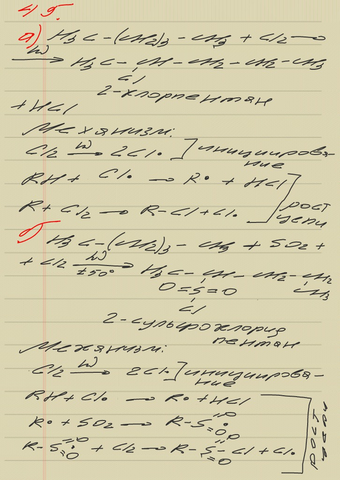 4 г.
а) H3C-(CH2)3-CH3 + Cl2 →
hν → H3C-CH-CH2-CH2-CH3
Cl
2-хлорпентан
+ HCl
Механизм:
Cl2 hν → 2Cl• ] инициирова-
ние
RH + Cl• → R• + HCl
R + Cl2 → R-Cl + Cl• ] рост
цепи
б) H3C-(CH2)3-CH3 + SO2 +
+ Cl2 hν → ±50° H3C-CH-CH2-CH2
O=S=O CH3
Cl
2-сульфохлорид
пентан
Механизм:
Cl2 hν → 2Cl• ] инициирова-
ние
RH + Cl• → R• + HCl
R• + SO2 → R-S• =O =O
R-S• =O =O + Cl2 → R-S-Cl + Cl• =O =O
рост
цепи